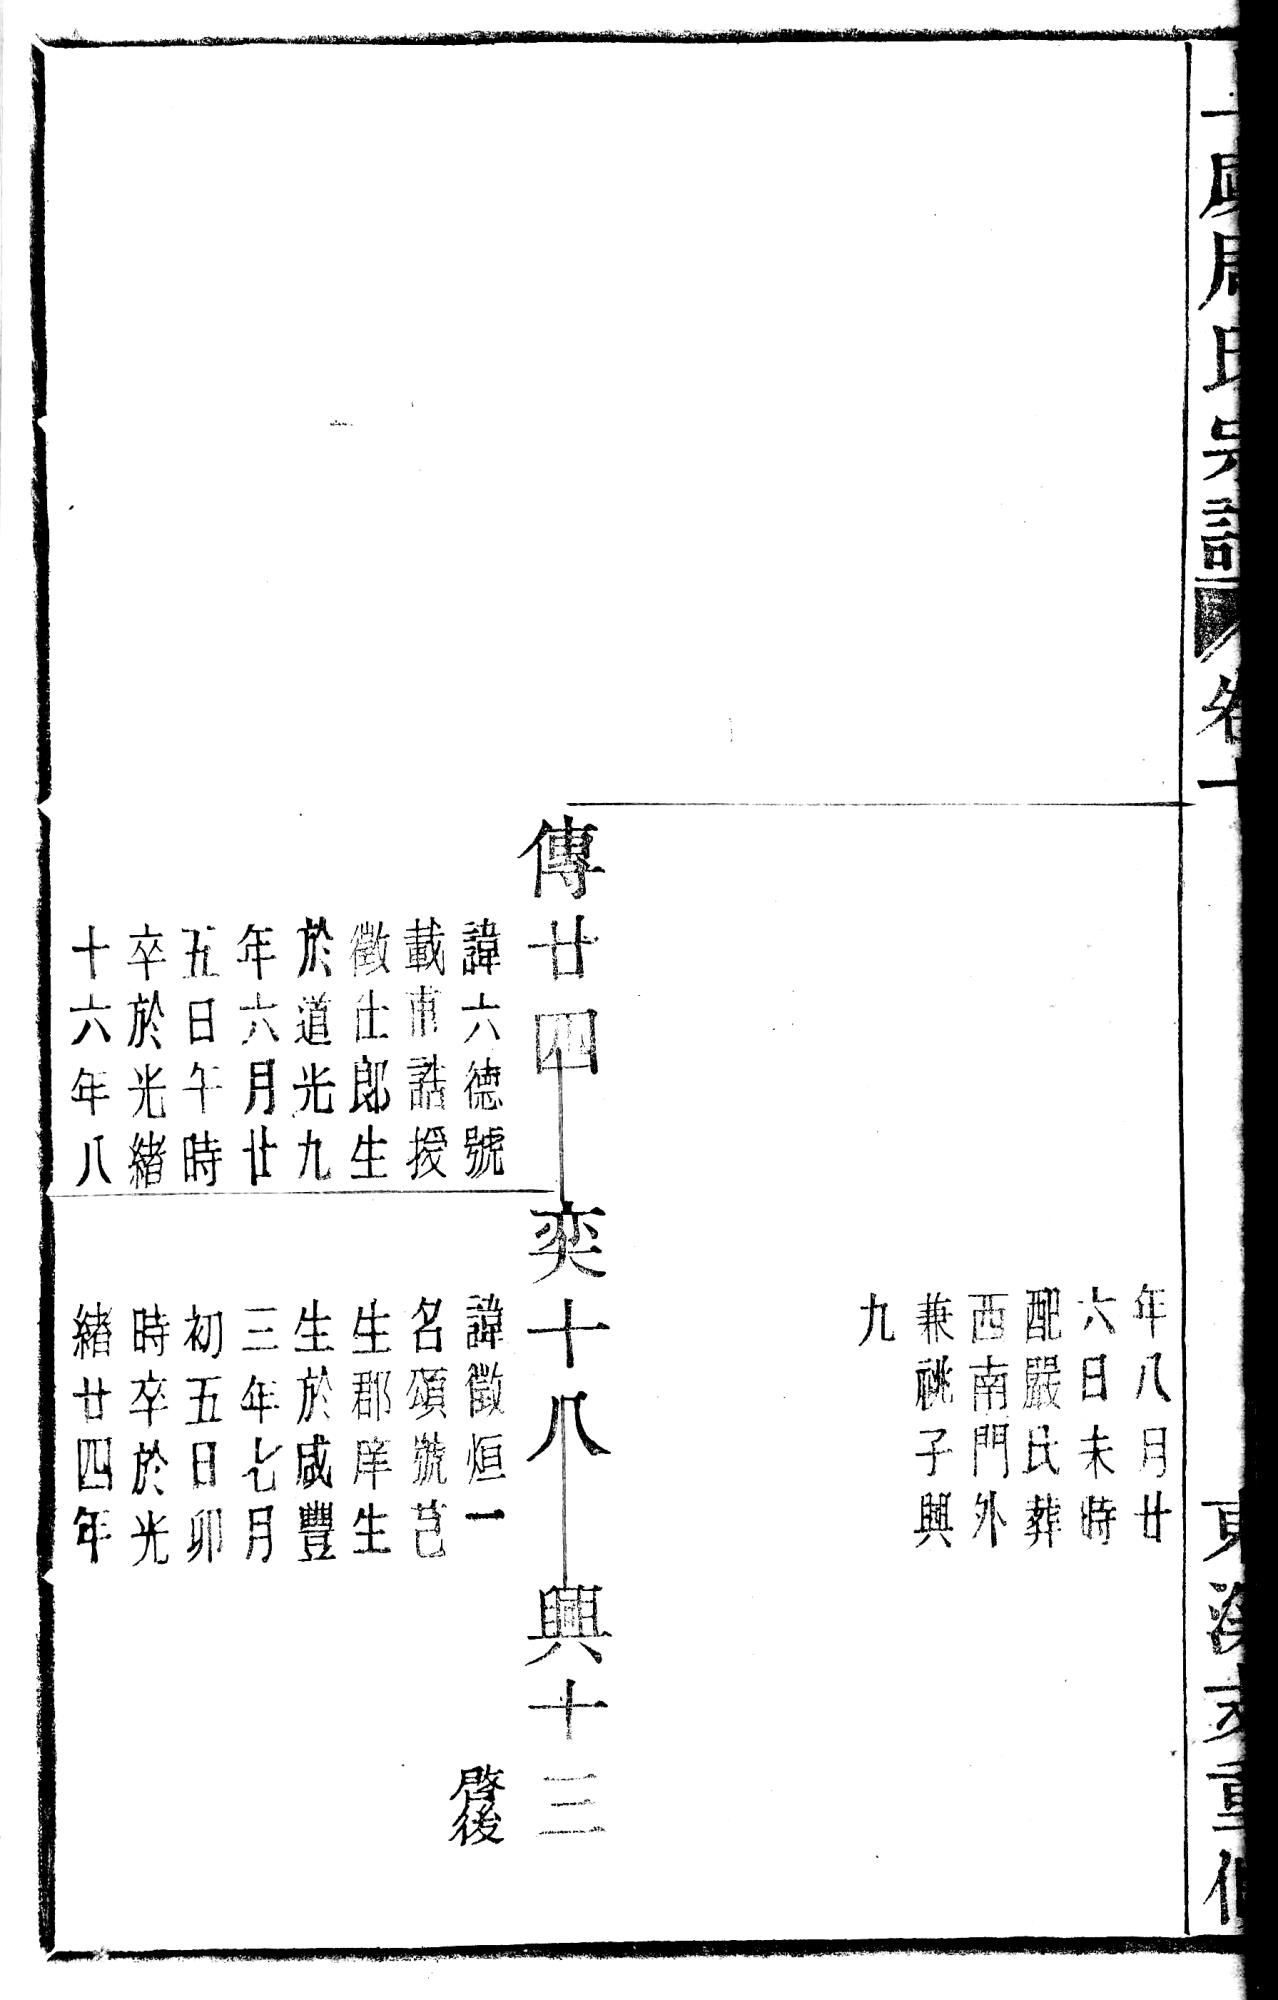 周氏宗譜 卷
重修
年八月廿
六日未時
配嚴氏葬
西南門外
兼祧子興
九
傳廿四
諱六德號
載誥授
徵仕郎生
於道光九
年六月廿
五日午時
卒於光緒
十六年八
奕十八
諱徵烜一
名頌號芑
生郡庠生
生於咸豐
三年七月
初五日卯
時卒於光
緒廿四年
興十三
啓後